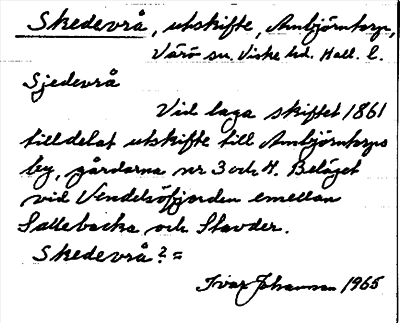 Skedevrå, utskifte, Ambjörntorp,
Värö sn. Viske hd. Hall. l.
Sjedevrå
Vid laga skiftet 1861
tilldelat utskifte till Ambjörntorps
by, gårdarna nr 3 och 4. Beläget
vid Vendelsöfjorden emellan
Sallebacka och Stavder.
Skedevrå? =
Ivar Johansson 1965